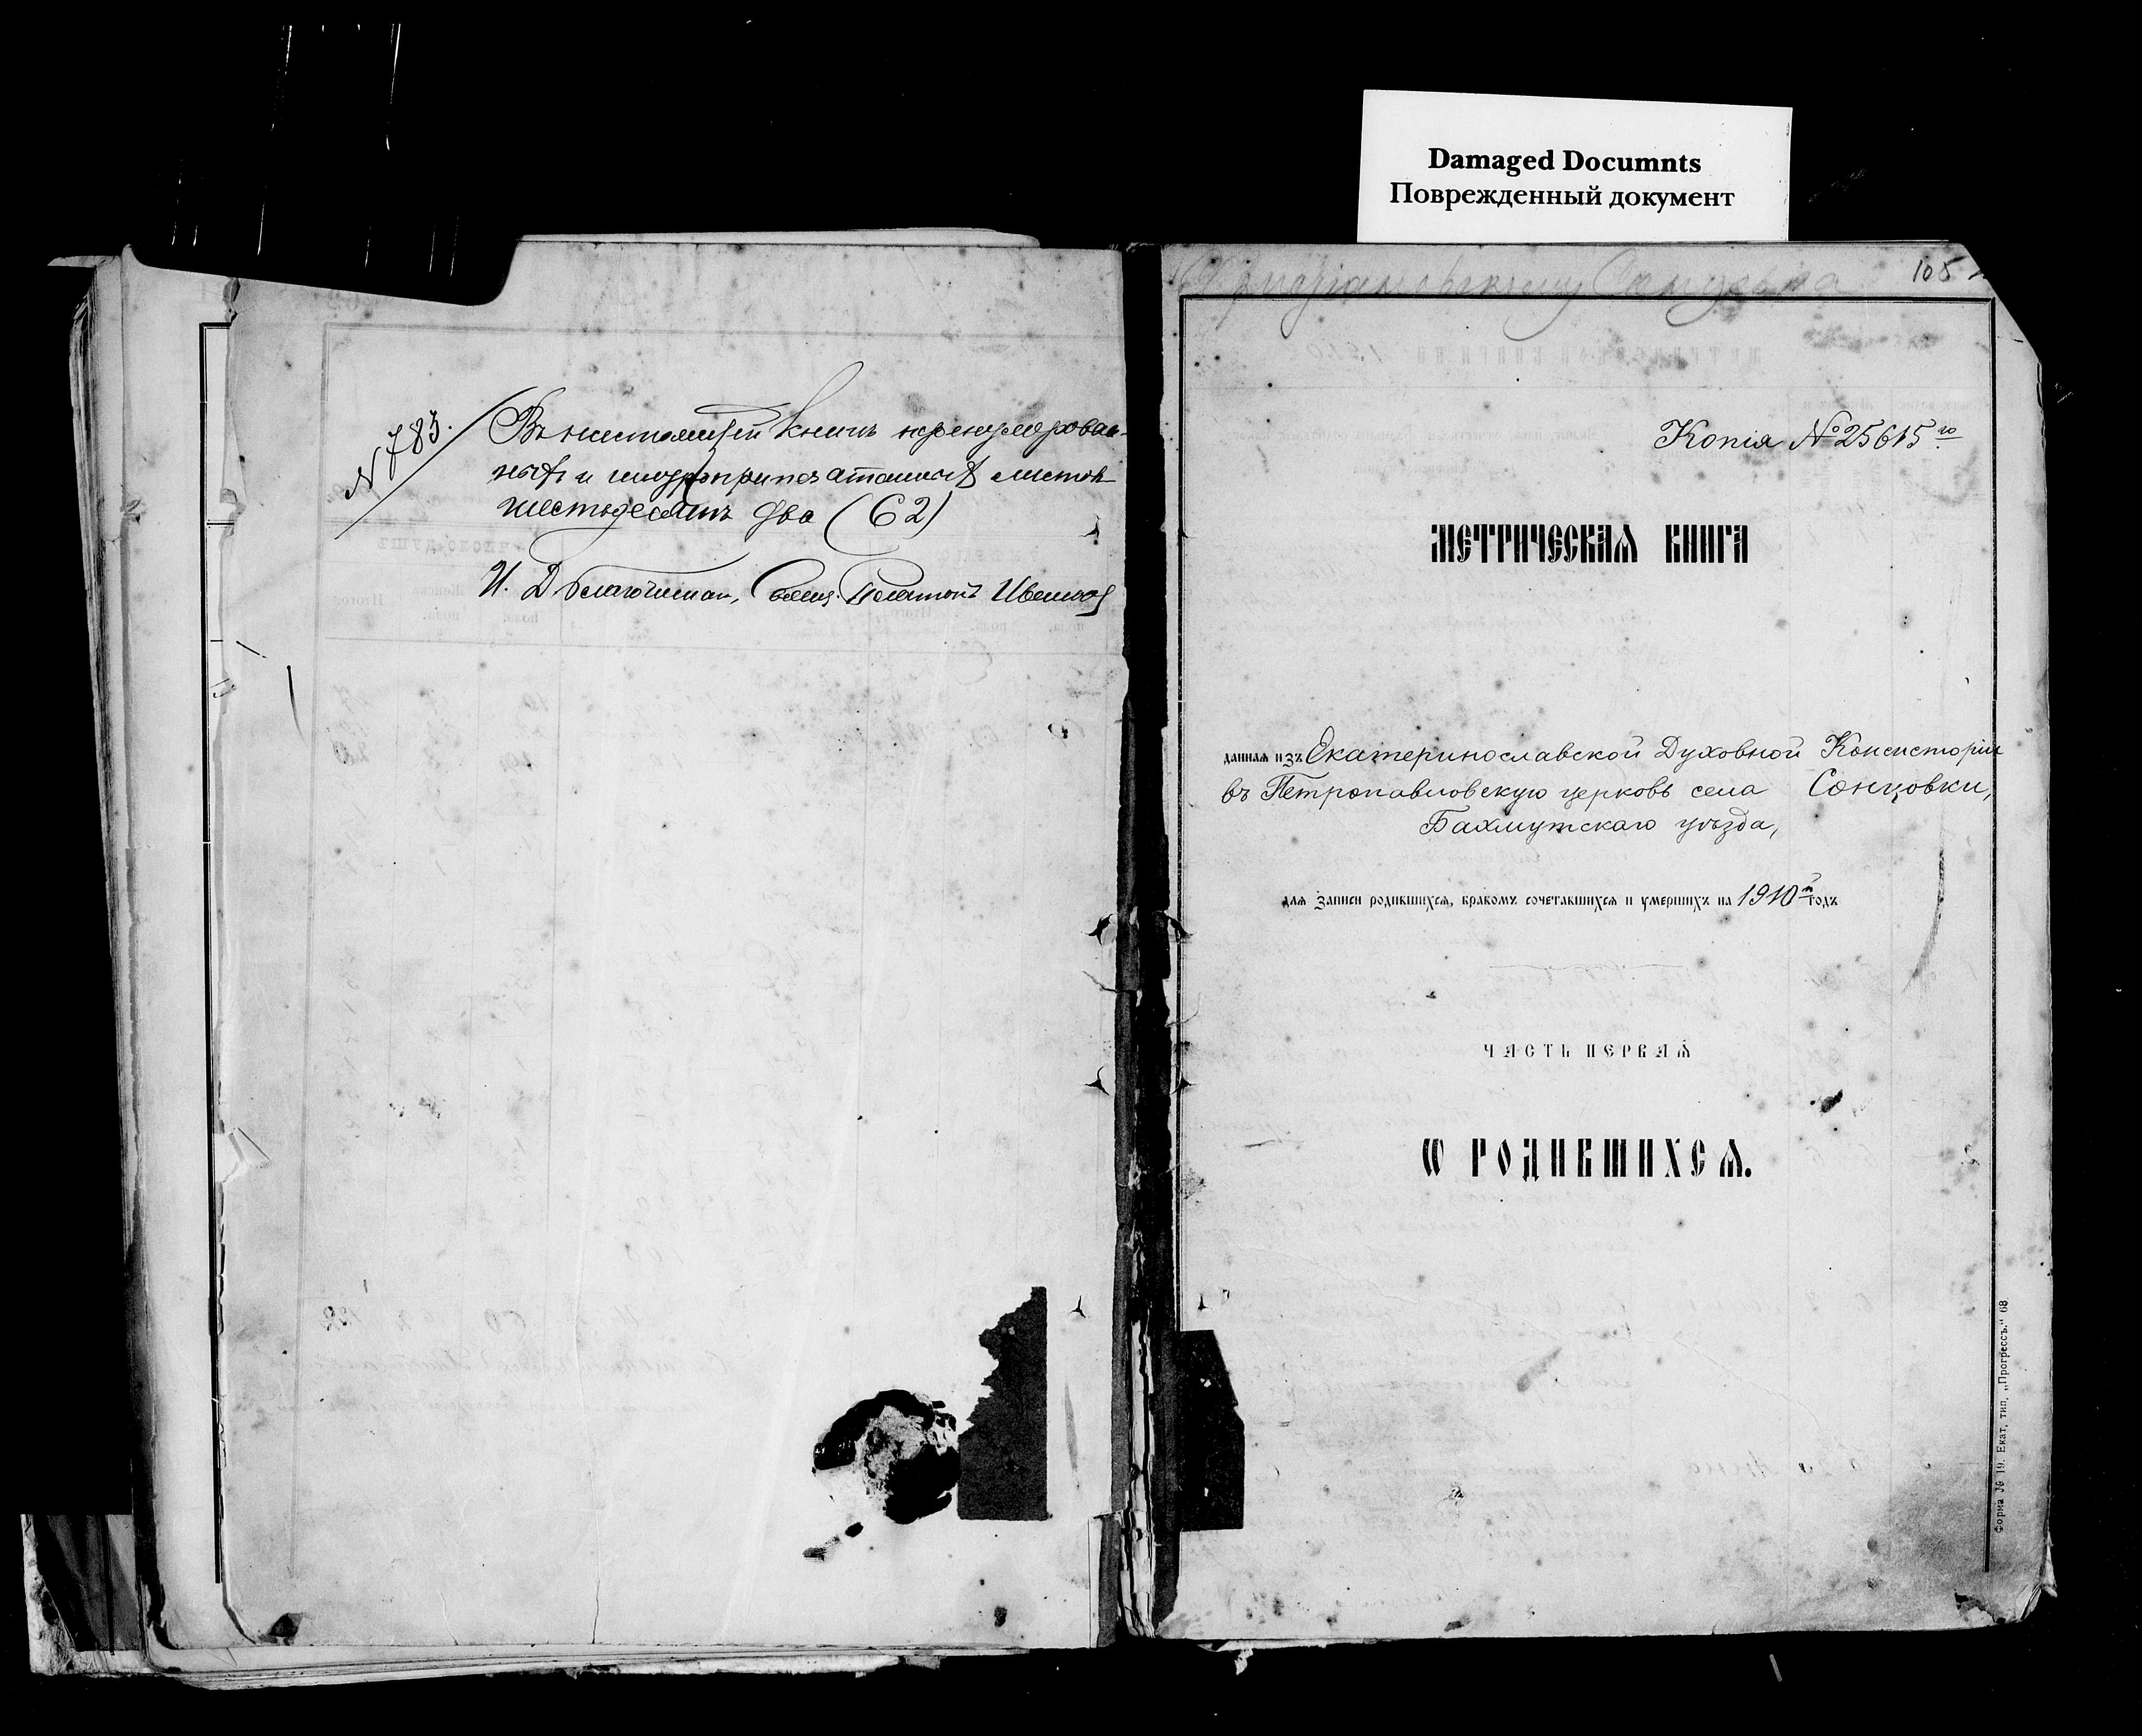 Damaged Documnts
Поврежденный документ
N 783.
Въ настоящей книгѣ пронумерован-
ныхъ и шнуроприпечатанныхъ листовъ
шестьдесятъ два (62)
И. Д. Благочиннаго, Свящ. Платонъ
105
Копія № 25615го
МЕТРИЧЕСКАЯ КНИГА
данная изъ Екатеринославской Духовной Консисторіи
въ Петропавловскую церковь села Сонцовки,
Бахмутскаго уѣзда,
для записи родившихся, бракомъ сочетавшихся и умершихъ на 1910й годъ
ЧАСТЬ ПЕРВАЯ
Ѡ РОДИВШИХСЯ.
Форма № 19. Екат. тип. „Прогрессъ." 68.